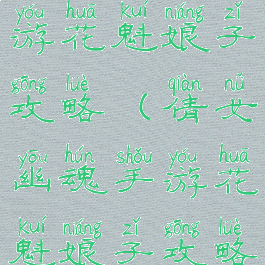 yóu huā kuí niáng zǐ
游花魁娘子
gōng lüè qiàn nǚ
攻略(倩女
yōu hún shǒu yóu huā
幽魂手游花
kuí niáng zǐ gōng lüè
魁娘子攻略